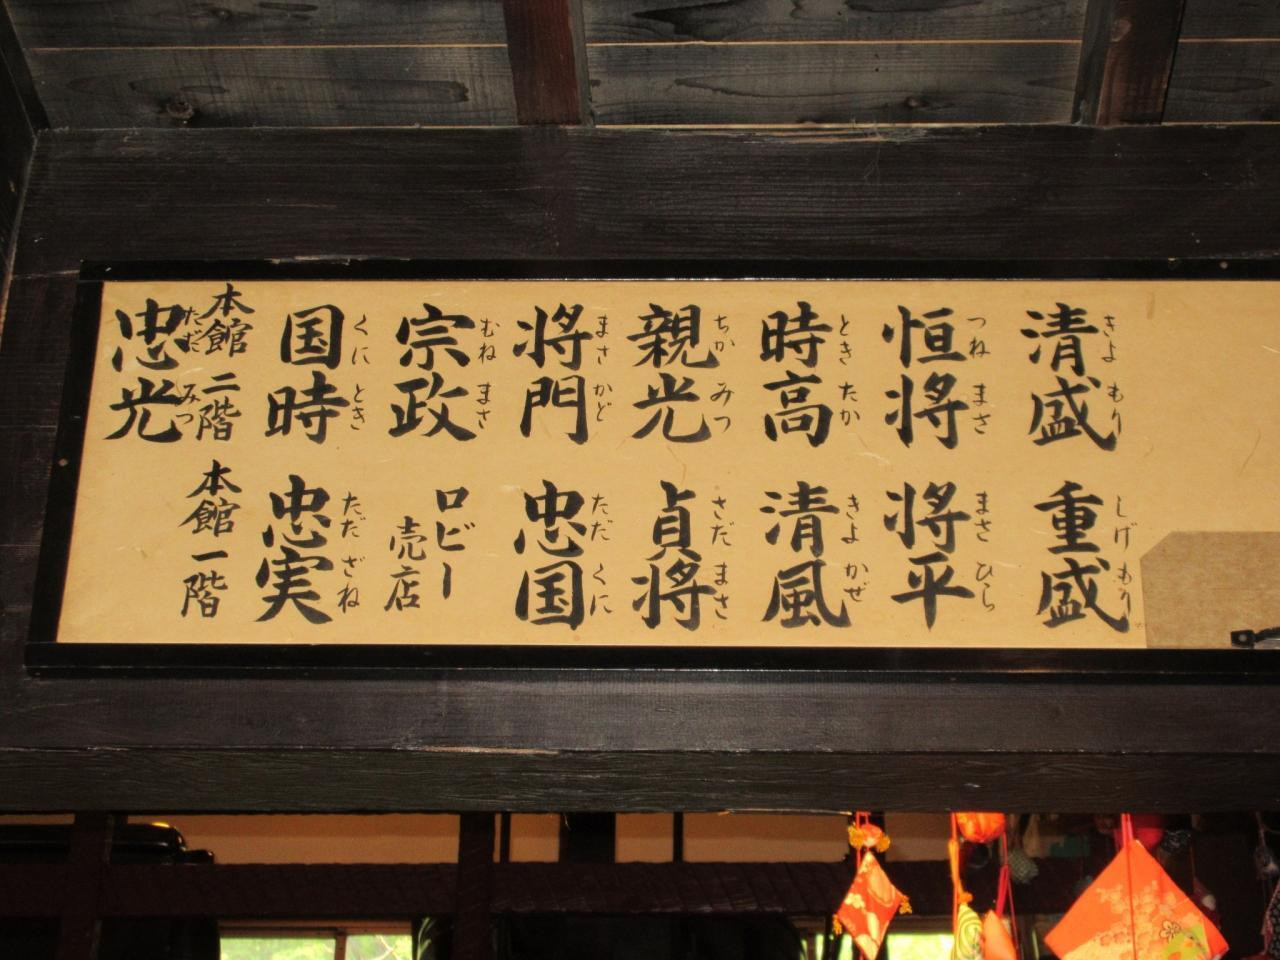 清盛 きよもり
重盛 しげもり
恒将 つねまさ
将平 まさひら
時高 ときたか
清風 きよかぜ
親光 ちかみつ
貞将 さだまさ
将門 まさかど
忠国 ただくに
宗政 むねまさ
ロビー
売店
国時 くにとき
忠実 ただざね
本館二階
本館一階
忠光 ただみつ